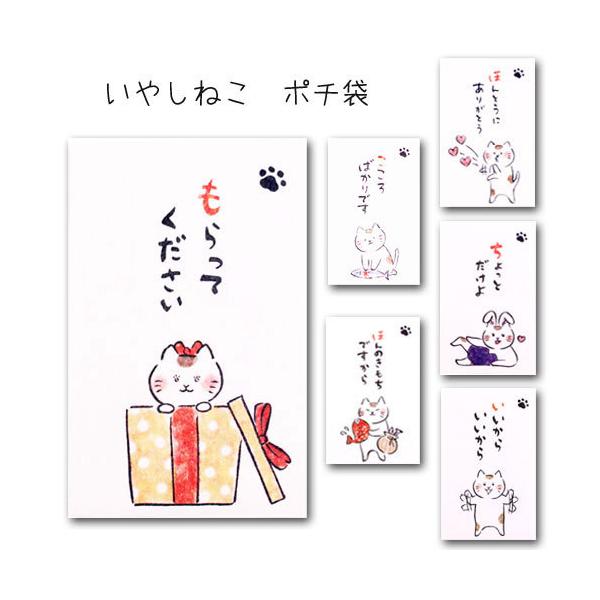 いやしねこ ポチ袋
もらって
ください
こころ
ばかりです
ほんのきもち
ですから
ほんとうに
ありがとう
ちょっと
だけよ
いいから
いいから